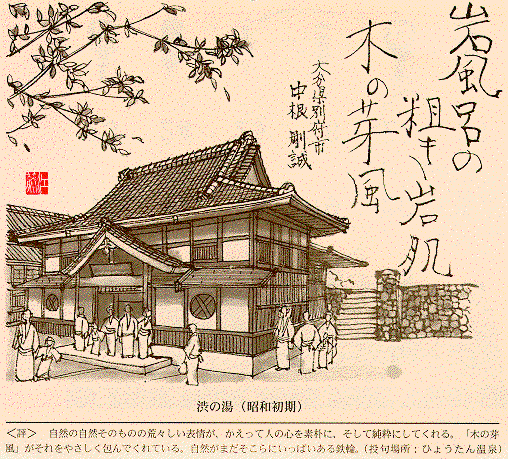 岩風呂の
粗き岩肌
木の芽風
大分県別府市
中根 剛誠
渋の湯（昭和初期）
＜評＞　自然の自然そのものの荒々しい表情が、かえって人の心を素朴に、そして純粋にしてくれる。「木の芽
風」がそれをやさしく包んでくれている。自然がまだそこらにいっぱいある鉄輪。（投句場所；ひょうたん温泉）